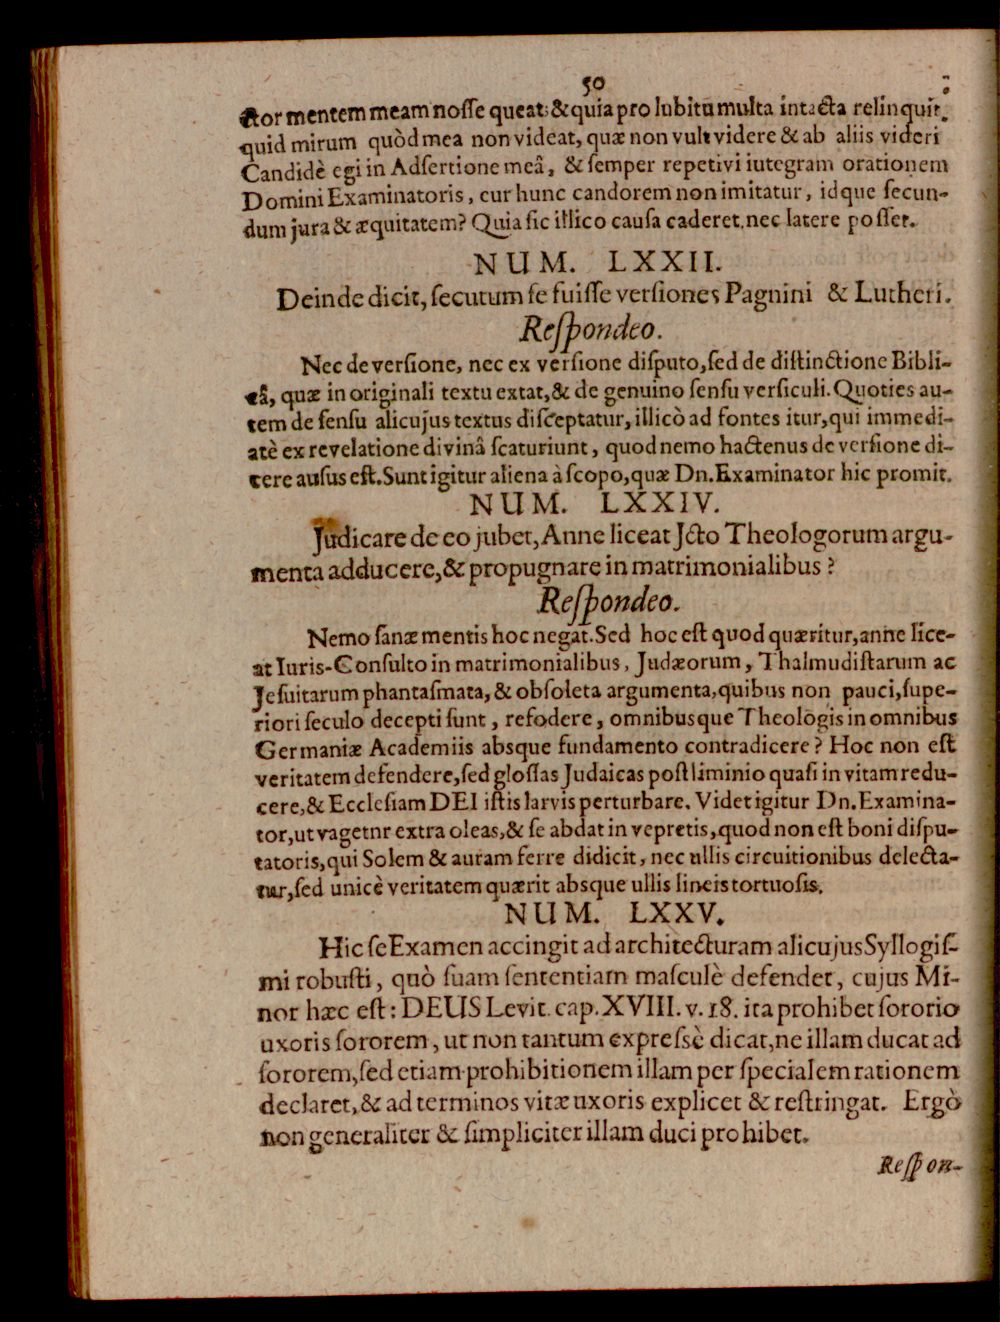 50
ctor mentem meam nosse queat; & quia pro lubitu multa intacta relinquit,
quid mirum quòd mea non videat, quæ non vult videre & ab aliis videri
Candidè egi in Adsertione meâ, & semper repetivi iutegram orationem
Domini Examinatoris, cur hunc candorem non imitatur, idque secun-
dum jura & æquitatem? Quia sic illico causa caderet. nec latere posset.
NUM. LXXII.
Deinde dicit, secutum se fuisse versiones Pagnini & Lutheri.
Respondeo.
Nec de versione, nec ex versione disputo, sed de distinctione Bibli-
câ, quæ in originali textu extat, & de genuino sensu versiculi. Quoties au-
tem de sensu alicujus textus disceptatur, illicò ad fontes itur, qui immedi-
atè ex revelatione divinâ scaturiunt, quod nemo hactenus de versione di-
cere ausus est. Sunt igitur aliena à scopo, quæ Dn. Examinator hic promit.
NUM. LXXIV.
Judicare de eo jubet, Anne liceat Jcto Theologorum argu-
menta adducere, & propugnare in matrimonialibus?
Respondeo.
Nemo sanæ mentis hoc negat. Sed hoc est quod quæritur, anne lice-
at Iuris-Consulto in matrimonialibus, Judæorum, Thalmudistarum ac
Jesuitarum phantasmata, & obsoleta argumenta, quibus non pauci, supe-
riori seculo decepti sunt, refodere, omnibusque Theologis in omnibus
Germaniæ Academiis absque fundamento contradicere? Hoc non est
veritatem defendere, sed glossas Judaicas postliminio quasi in vitam redu-
cere, & Ecclesiam DEI istis larvis perturbare. Videt igitur Dn. Examina-
tor, ut vagetnr extra oleas, & se abdat in vepretis, quod non est boni dispu-
tatoris, qui Solem & auram ferre didicit, nec ullis circuitionibus delecta-
tur, sed unicè veritatem quærit absque ullis lineis tortuosis.
NUM. LXXV.
Hic se Examen accingit ad architecturam alicujus Syllogis-
mi robusti, quò suam sententiam masculè defendet, cujus Mi-
nor hæc est: DEUS Levit. cap. XVIII. v. 18. ita prohibet sororio
uxoris sororem, ut non tantum expressè dicat, ne illam ducat ad
sororem, sed etiam prohibitionem illam per specialem rationem
declaret, & ad terminos vitæ uxoris explicet & restringat. Ergò
non generaliter & simpliciter illam duci prohibet.
Respon-